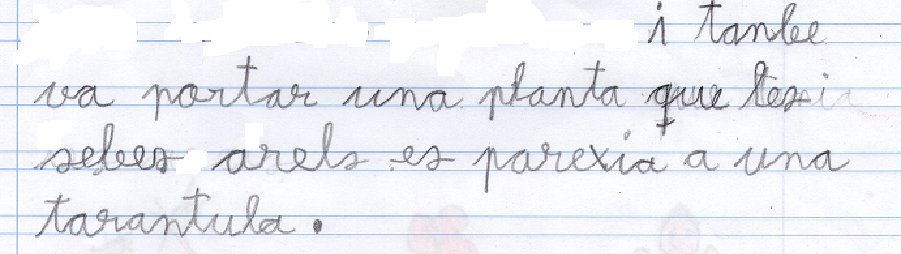 i tanbe
va portar una planta que les
sebes arels es parexia a una
tarantula.